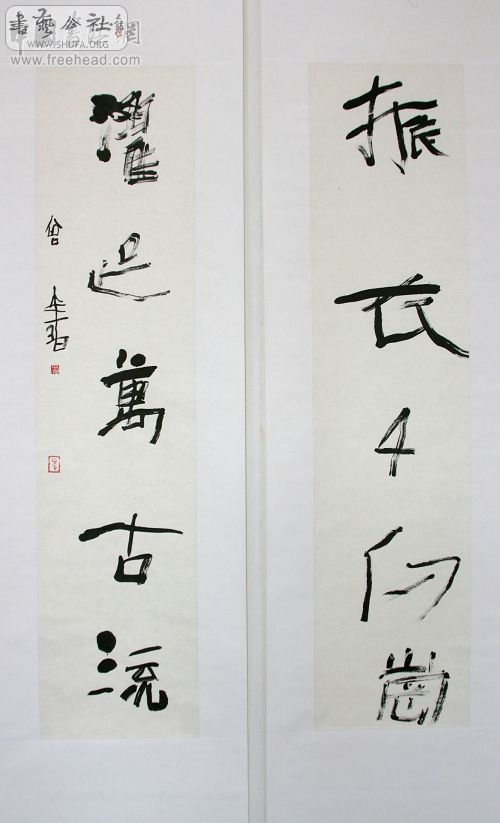 書藝公社
WWW.SHUFA.ORG
www.freehead.com
振衣千仞崗
濯足萬古流
曾